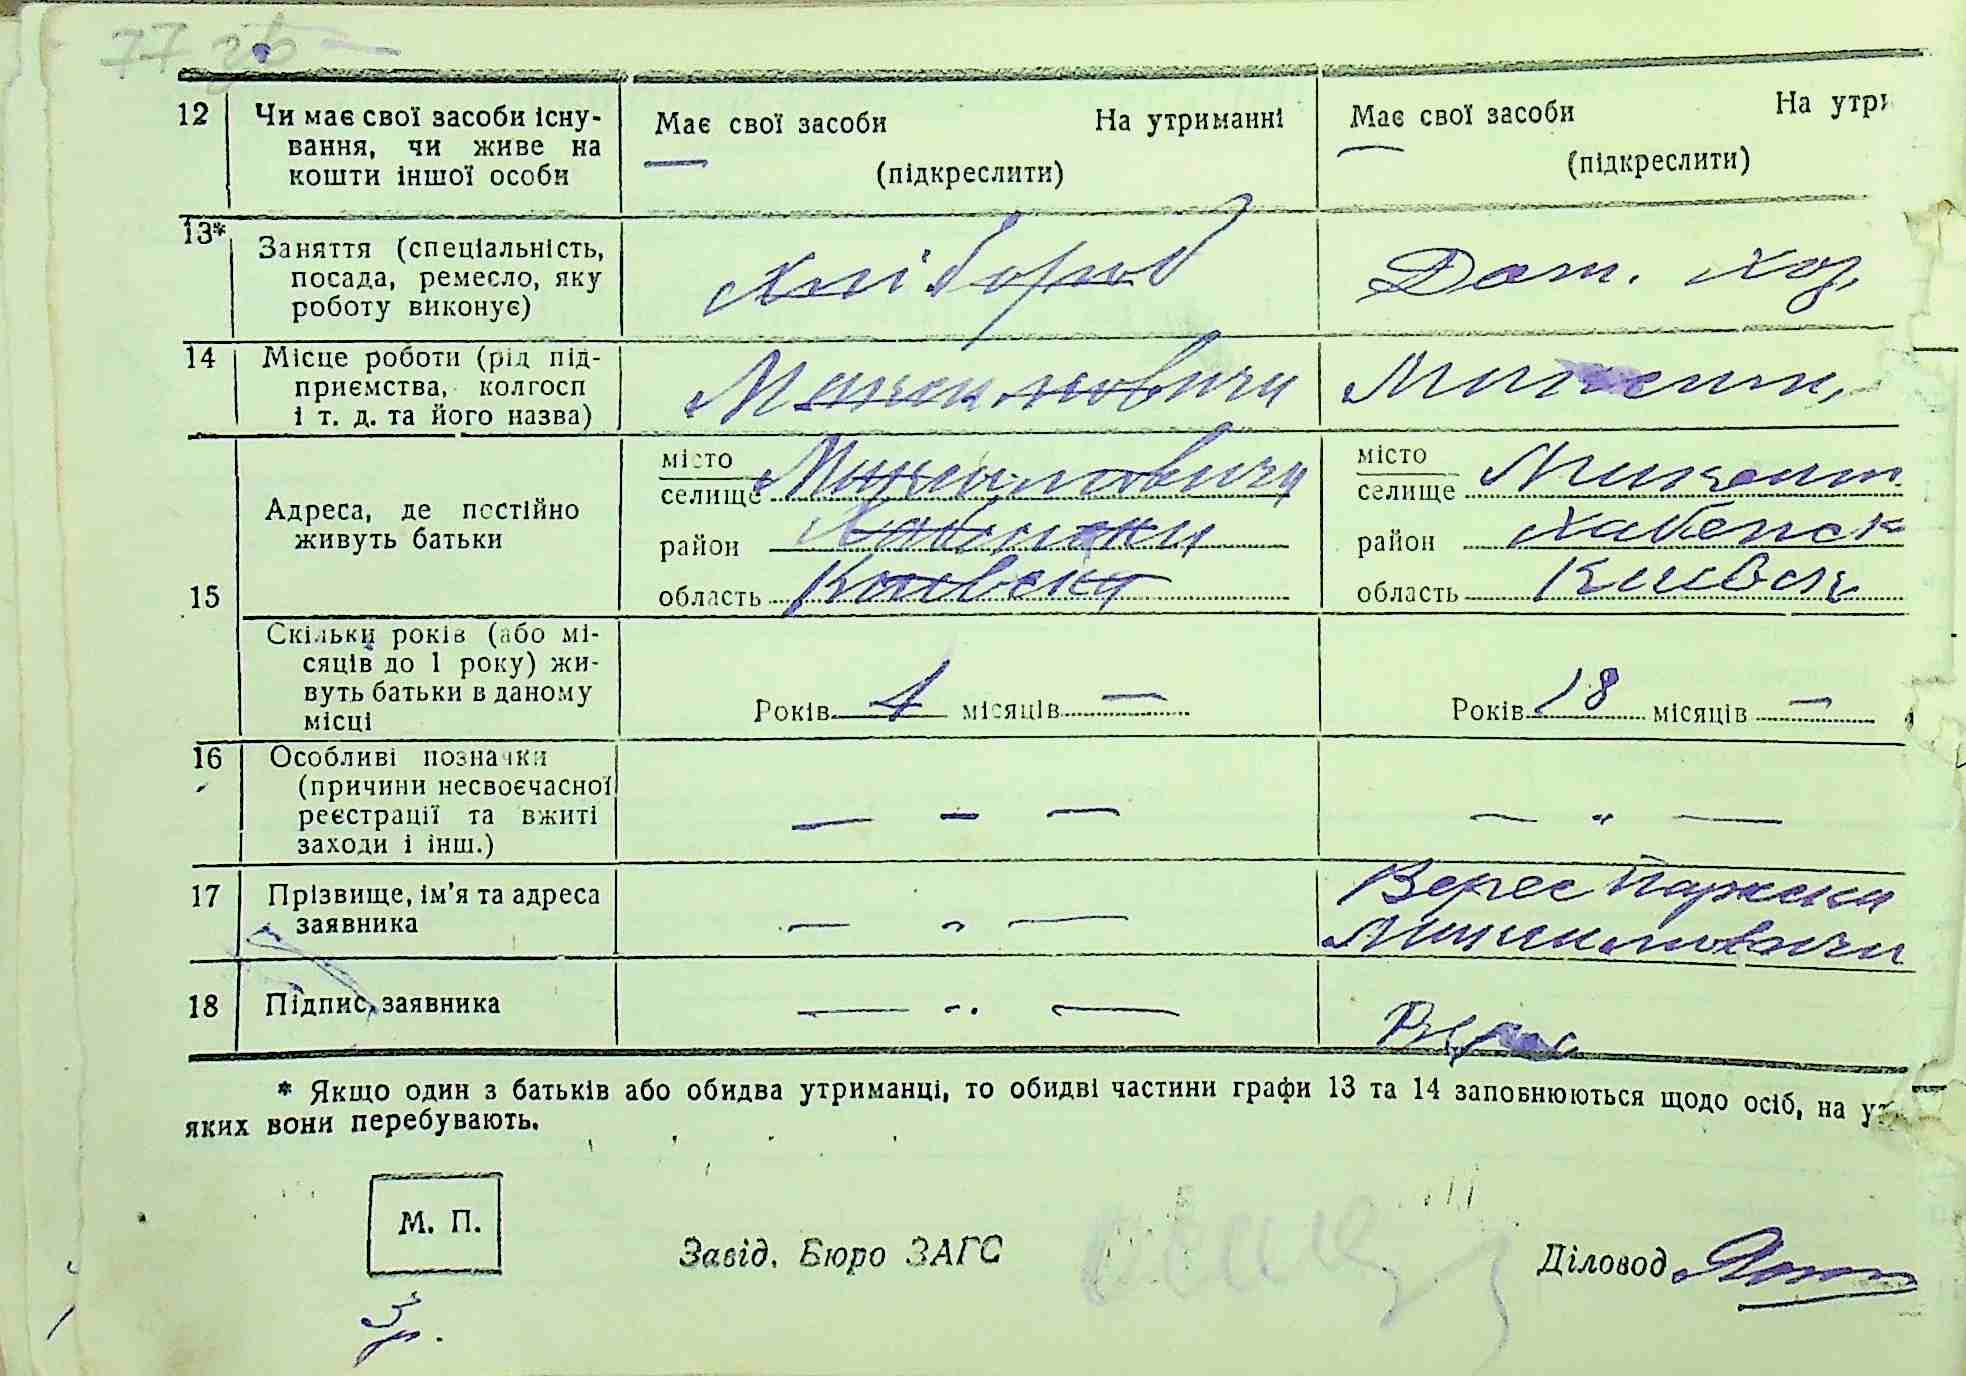 77 зв
12 Чи має свої засоби існу- Має свої засоби На утриманні Має свої засоби На утри
вання, чи живе на
кошти іншої особи (підкреслити) (підкреслити)
13* Заняття (спеціальність,
посада, ремесло, яку Хлібороб Дом. хоз.
роботу виконує)
14 Місце роботи (рід під-
приємства, колгосп
і т. д. та його назва)
місто місто
селище селище
Адреса, де постійно
живуть батьки район район
15 область Киевска область Киевск
Скільки років (або мі-
сяців до 1 року) жи-
вуть батьки в даному Років 4 місяців — Років 18 місяців —
місці
16 Особливі позначки
(причини несвоєчасної
реєстрації та вжиті — - — — " —
заходи і інш.)
17 Прізвище, ім'я та адреса Верес
заявника — " —
18 Підпис заявника — " — Верес
* Якщо один з батьків або обидва утриманці, то обидві частини графи 13 та 14 заповнюються щодо осіб, на ут
яких вони перебувають.
М. П.
Завід. Бюро ЗАГС Діловод